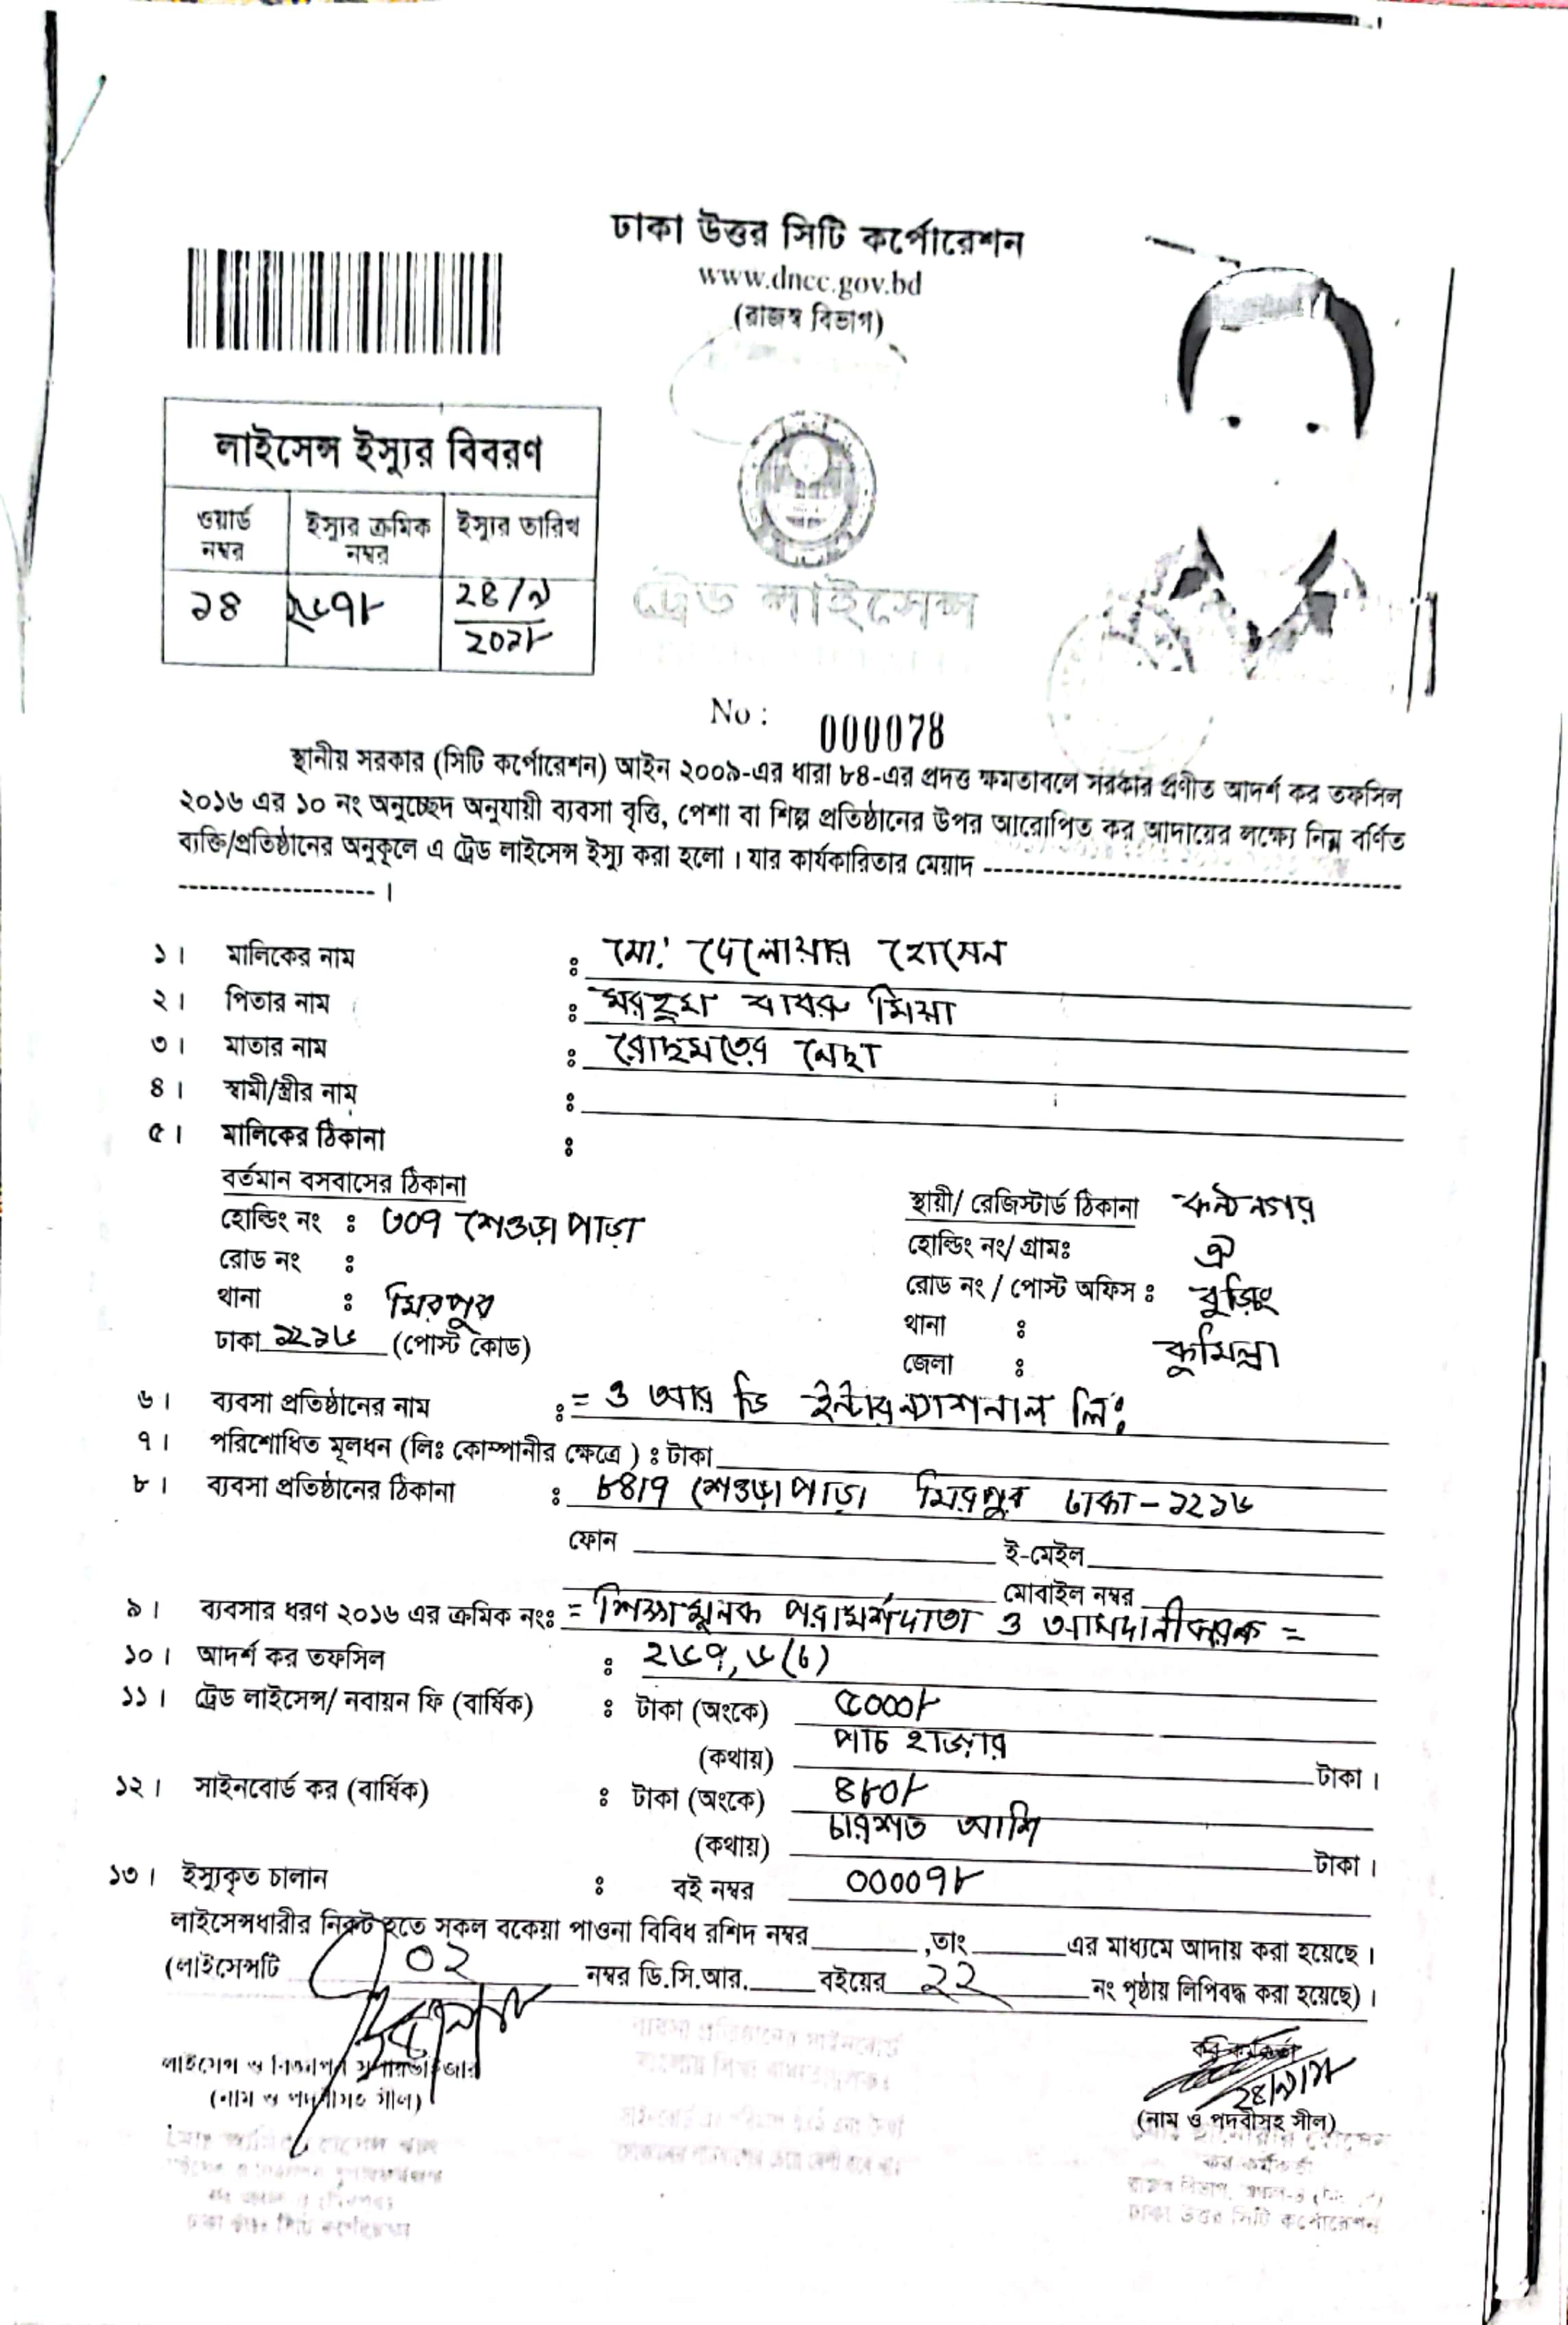 ঢাকা উত্তর সিটি কর্পোরেশন
www.dncc.gov.bd
(রাজস্ব বিভাগ)
লাইসেন্স ইস্যুর বিবরণ
ওয়ার্ড নম্বর ইস্যুর ক্রমিক নম্বর ইস্যুর তারিখ
১৪ ২৬৭৮ ২৪/৯
২০১৮
ট্রেড লাইসেন্স
No : 000078
স্থানীয় সরকার (সিটি কর্পোরেশন) আইন ২০০৯-এর ধারা ৮৪-এর প্রদত্ত ক্ষমতাবলে সরকার প্রণীত আদর্শ কর তফসিল
২০১৬ এর ১০ নং অনুচ্ছেদ অনুযায়ী ব্যবসা বৃত্তি, পেশা বা শিল্প প্রতিষ্ঠানের উপর আরোপিত কর আদায়ের লক্ষ্যে নিম্ন বর্ণিত
ব্যক্তি/প্রতিষ্ঠানের অনুকূলে এ ট্রেড লাইসেন্স ইস্যু করা হলো । যার কার্যকারিতার মেয়াদ ------------------------------------------
------------------- ।
১। মালিকের নাম : মো: দেলোয়ার হোসেন
২। পিতার নাম : মরহুম বাবরু মিয়া
৩। মাতার নাম : রোছমতের নেছা
৪। স্বামী/স্ত্রীর নাম :
৫। মালিকের ঠিকানা :
বর্তমান বসবাসের ঠিকানা
হোল্ডিং নং : ৩০৭ শেওড়া পাড়া
রোড নং :
থানা : মিরপুর
ঢাকা ১২১৬ (পোস্ট কোড)
স্থায়ী/ রেজিস্টার্ড ঠিকানা
হোল্ডিং নং/ গ্রামঃ ঐ
রোড নং / পোস্ট অফিস : বুড়িচং
থানা :
জেলা : কুমিল্লা
৬। ব্যবসা প্রতিষ্ঠানের নাম : = ও আর ডি ইন্টারন্যাশনাল লিঃ
৭। পরিশোধিত মূলধন (লিঃ কোম্পানীর ক্ষেত্রে ) : টাকা
৮। ব্যবসা প্রতিষ্ঠানের ঠিকানা : ৮৪/৭ শেওড়া পাড়া মিরপুর ঢাকা - ১২১৬
ফোন ই-মেইল
মোবাইল নম্বর
৯। ব্যবসার ধরণ ২০১৬ এর ক্রমিক নংঃ = শিক্ষামূলক পরামর্শদাতা ও আমদানীকারক =
১০। আদর্শ কর তফসিল : ২৬৭, ৬(চ)
১১। ট্রেড লাইসেন্স/ নবায়ন ফি (বার্ষিক) : টাকা (অংকে) ৫০০০/-
(কথায়) পাচ হাজার টাকা ।
১২। সাইনবোর্ড কর (বার্ষিক) : টাকা (অংকে) ৪৮০/-
(কথায়) চারশত আশি টাকা ।
১৩। ইস্যুকৃত চালান : বই নম্বর ০০০০৭৮
লাইসেন্সধারীর নিকট হতে সকল বকেয়া পাওনা বিবিধ রশিদ নম্বর ,তাং এর মাধ্যমে আদায় করা হয়েছে ।
(লাইসেন্সটি ০২ নম্বর ডি.সি.আর. বইয়ের ২২ নং পৃষ্ঠায় লিপিবদ্ধ করা হয়েছে) ।
লাইসেন্স ও বিজ্ঞাপন সুপারভাইজার
(নাম ও পদবীসহ সীল)
কর কর্মকর্তা
২৪/৯/১৮
(নাম ও পদবীসহ সীল)
কর কর্মকর্তা
ঢাকা উত্তর সিটি কর্পোরেশন